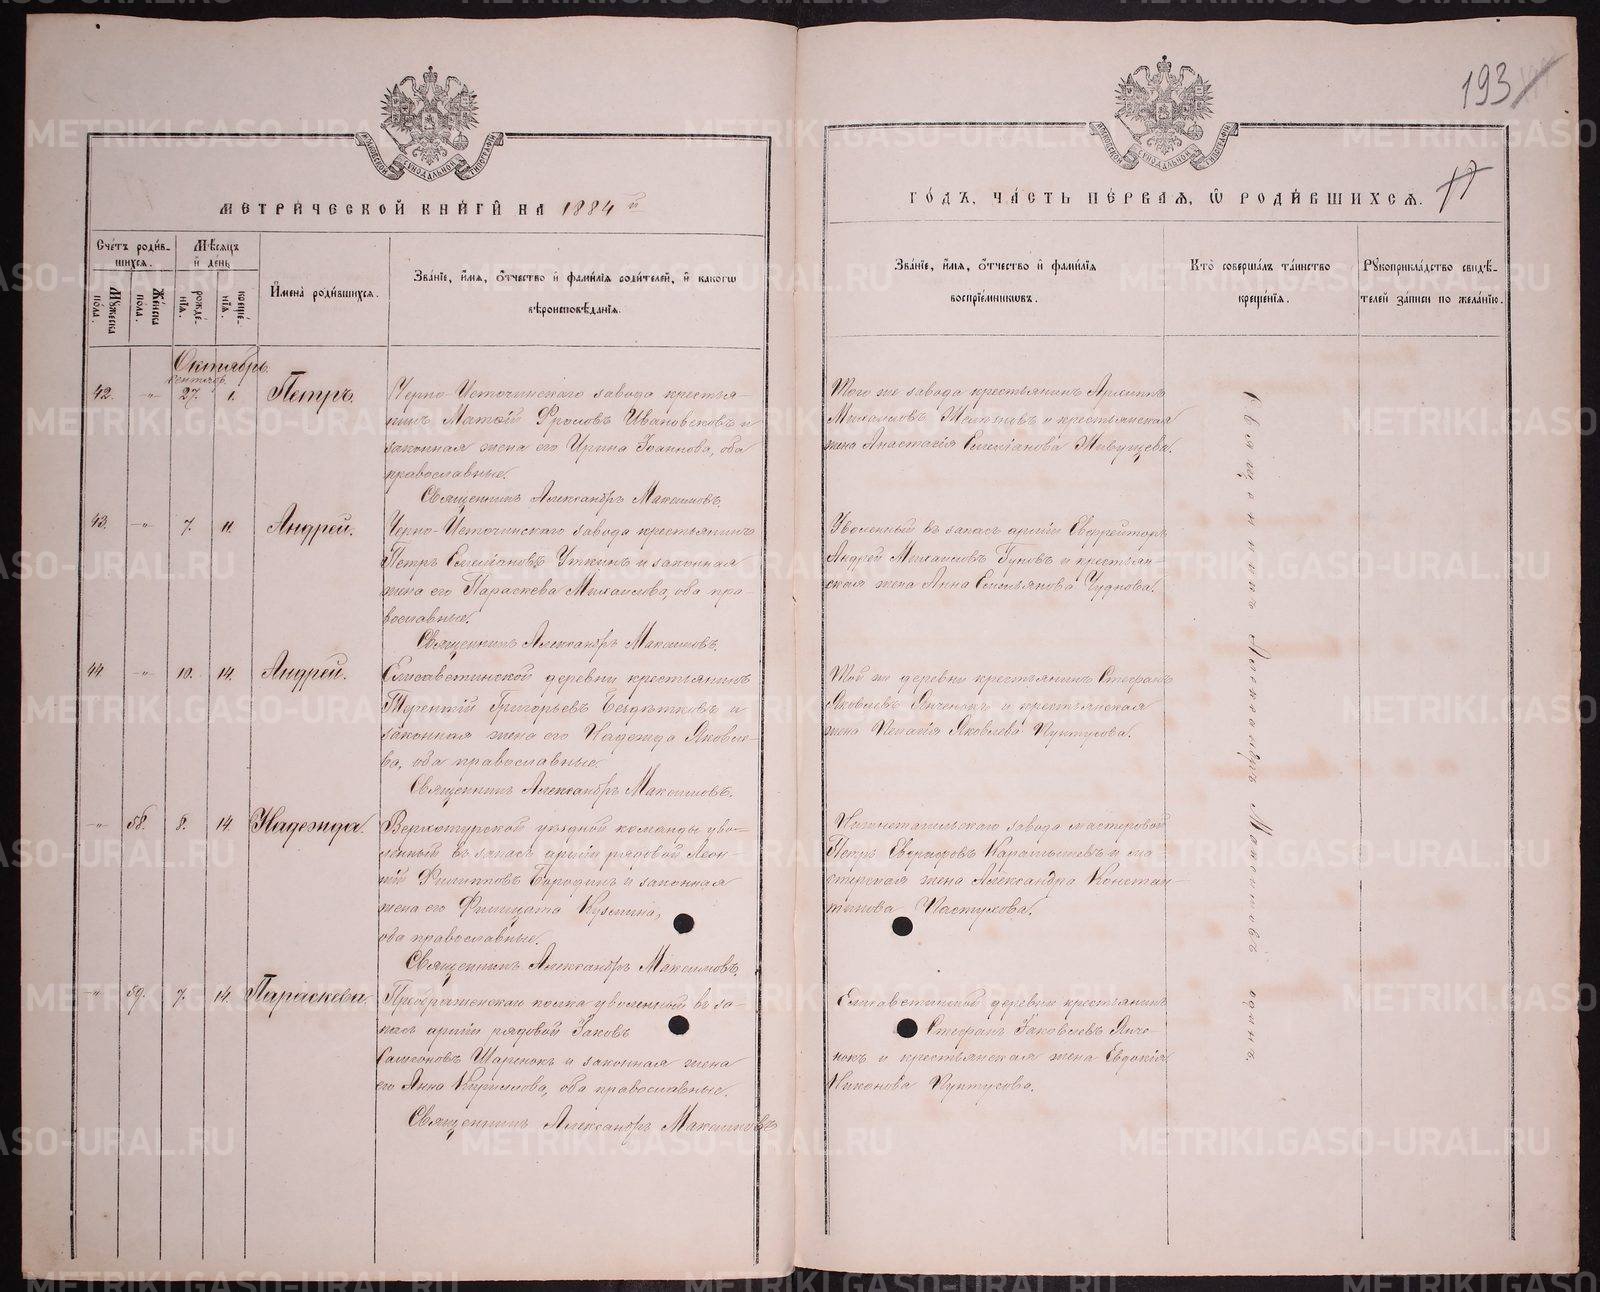 193
МОСКОВСКОЙ СѴНОДАЛЬНОЙ ТИПОГРАФІИ
МОСКОВСКОЙ СѴНОДАЛЬНОЙ ТИПОГРАФІИ
МЕТРИ́ЧЕСКОЙ КНИ́ГИ НА 1884 й
ГО́ДЪ, ЧА́СТЬ ПЕ́РВАЯ, Ѽ РОДИ́ВШИХСЯ.
17
Сче́тъ роди́в-
шихся.
Му́жеска по́ла.
Же́нска по́ла.
Мѣ́сяцъ
и҆ де́нь
рожде́-
нїя.
креще́-
нїя.
И҆мена̀ роди́вшихся.
Зва́нїе, и҆́мя, ѻ҆́тчество и҆ фами́лїя роди́телей, и҆ како́гѡ
вѣроисповѣ́данїя.
Зва́нїе, и҆́мя, ѻ҆́тчество и҆ фами́лїя
воспрїе́мникѡвъ.
Кто̀ соверша́лъ та́инство
креще́нїя.
Рꙋкоприкла́дство свидѣ́-
телей за́писи по жела́нїю.
Октябрь.
Сентябр.
42. -"- 27. 1. Петръ.
Черно-Источинскаго завода крестья-
нинъ Матѳій Фроловъ Ивановсковъ и
законная жена его Ирина Іоаннова, оба
православные.
Священникъ Александръ Максимовъ.
Того же завода крестьянинъ Архипъ
Михаиловъ и крестьянская
жена Анастасія Емеліанова Живущева.
43. -"- 7. 11. Андрей.
Черно-Источинскаго завода крестьянинъ
Петръ Емеліановъ Уткинъ и законная
жена его Параскева Михаилова, оба пра-
вославные.
Священникъ Александръ Максимовъ.
Уволенный въ запасъ арміи Ефрейторъ
Андрей Михаиловъ Гуновъ и крестьян-
ская жена Анна Емельянова Чуднова.
44. -"- 10. 14. Андрей.
Елисаветинской деревни крестьянинъ
Терентій Григорьевъ Бездѣтковъ и
законная жена его Надежда Яковле-
ва, оба православные.
Священникъ Александръ Максимовъ.
Той же деревни крестьянинъ Стефанъ
Яковлевъ Янченокъ и крестьянская
жена Пелагія Яковлева Пунтусова.
-"- 58. 8. 14. Надежда.
Верхотурской уѣздной команды уво-
ленный въ запасъ арміи рядовой Леон-
тій Филипповъ Бородинъ и законная
жена его Филицата Кузмина,
оба православные.
Священникъ Александръ Максимовъ.
Нижнетагильскаго завода мастеровой
Петръ Евдокимовъ и ма-
стерская жена Александра Констан-
тинова Пастухова.
-"- 59. 7. 14. Параскева.
Преображенскаго полка уволенный въ за-
пасъ арміи рядовой Іаковъ
Самсоновъ Шаренокъ и законная жена
его Анна Кириллова, оба православные.
Священникъ Александръ Максимовъ
Елисаветинской деревни крестьянинъ
Стефанъ Іаковлевъ Янче-
нокъ и крестьянская жена Евдокія
Никонова Пунтусова.
Священникъ Александръ Максимовъ одинъ
METRIKI.GASO-URAL.RU